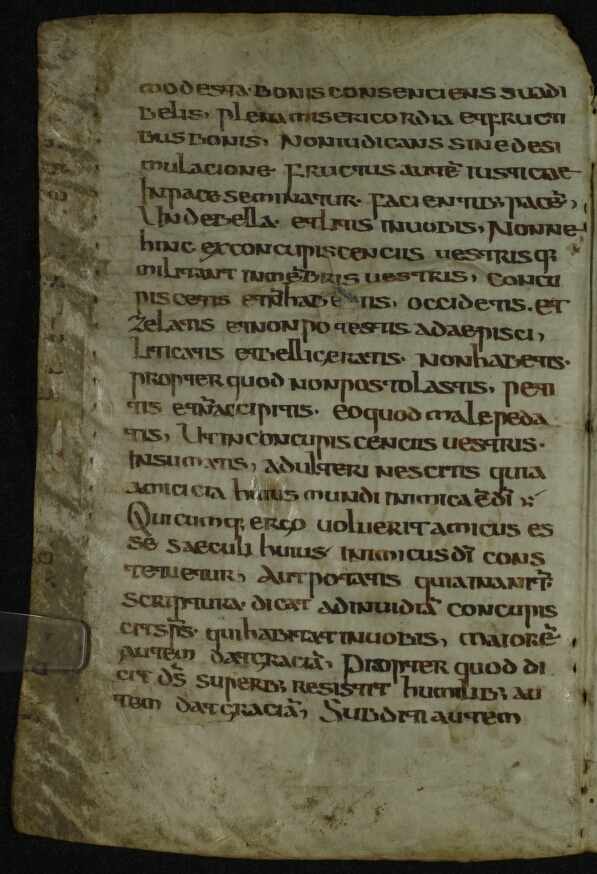 modesta. bonis consenciens suadi
belis, plena misericordia et fructi
bus bonis, Non iudicans sine desi
mulacione. fructus autē iusticiae
In pace seminatur. facientib; pacē,
Unde bella. et lites in uobis, Nonne
hinc ex concupiscenciis uestris q;
militant in mēbris uestris, concu
piscetis et n̄ habetis, occidetis. et
zelatis et non potestis adaepisci,
Liticatis et belligeratis. non habetis.
propter quod non postolastis, peti
tis et n̄ accipitis. eo quod male peda
tis, Ut in concupiscenciis uestris.
Insumatis, adulteri nescitis quia
amicicia huius mundi inimica ē dī
Quicumq; ergo uoluerit amicus es
sē saeculi huius inimicus dī cons
tetuetur, Aut potatis quia inanit̄
scriptura. dicat ad inuidiā concupis
cit sp̄s. qui habitat in uobis, maiorē
autem dat graciā, Propter quod di
cit d̄s superb; resistit humilib; au
tem dat graciā, Subditi autem